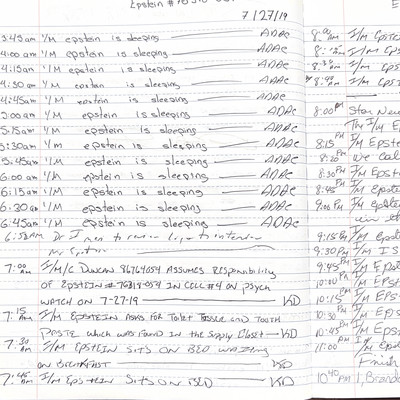 Epstein #
7/27/19
3:45 am I/M epstein is sleeping ADAC
4:00 am I/M epstein is sleeping ADAC
4:15 am I/M epstein is sleeping ADAC
4:30 am I/M epstein is sleeping ADAC
4:45 am I/M epstein is sleeping ADAC
5:00 am I/M epstein is sleeping ADAC
5:15 am I/M epstein is sleeping ADAC
5:30 am I/M epstein is sleeping ADAC
5:45 am I/M epstein is sleeping ADAC
6:00 am I/M epstein is sleeping ADAC
6:15 am I/M epstein is sleeping ADAC
6:30 am I/M epstein is sleeping ADAC
6:45 am I/M epstein is sleeping ADAC
6:58am Dr
7:00 am I/M/C Duncan 86764054 Assumes Responsibility
of Epstein #76318-054 in cell #4 on psych
watch on 7-27-19 KD
7:15 Am I/M Epstein Asks for Toilet Tissue and Tooth
Paste which was found in the supply closet KD
7:30 Am I/M Epstein sits on bed waiting
on Breakfast KD
7:45 Am I/M Epstein sits on bed KD
8:00 am I/M Epste
8:15 PM I/M Epste
8:20 PM we cal
8:30 PM I/M Epst
8:45 PM I/M Epst
9:00 PM I/M
9:15 PM I/M Epst
9:30 PM I/M IS
9:45 PM I/M Epst
10:00 PM I/M Epst
10:15 PM I/M EPS
10:30 PM I/M Eps
10:45 PM I/M Eps
11:00 PM I/M Eps
Finish
10:40 PM I, Brand